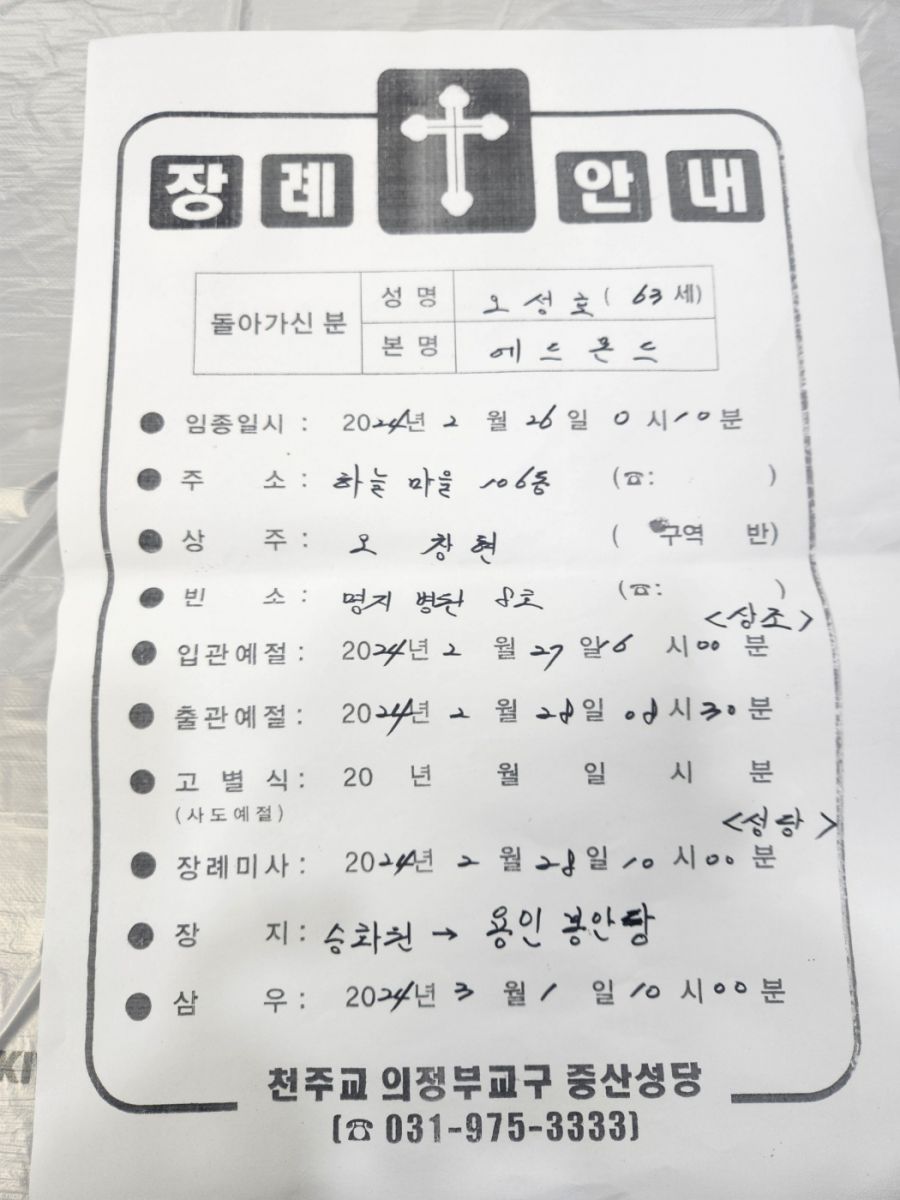 장례 안내
돌아가신 분
성 명 오성호 ( 63 세)
본 명 에드몬드
● 임종일시 : 2024년 2 월 26 일 0 시 10 분
● 주 소 : 하늘 마을 106동 (☎: )
● 상 주 : 오 창현 ( 구역 반)
● 빈 소 : 명지 병원 8호 (☎: )
<상조>
● 입관예절 : 2024년 2 월 27 일 16 시 00 분
● 출관예절 : 2024년 2 월 28 일 08 시 30 분
● 고 별 식 : 20 년 월 일 시 분
(사도예절)
<성당>
● 장례미사 : 2024년 2 월 28 일 10 시 00 분
● 장 지 : 승화원 → 용인 봉안당
● 삼 우 : 2024년 3 월 1 일 10 시 00 분
천주교 의정부교구 중산성당
(☎ 031-975-3333)